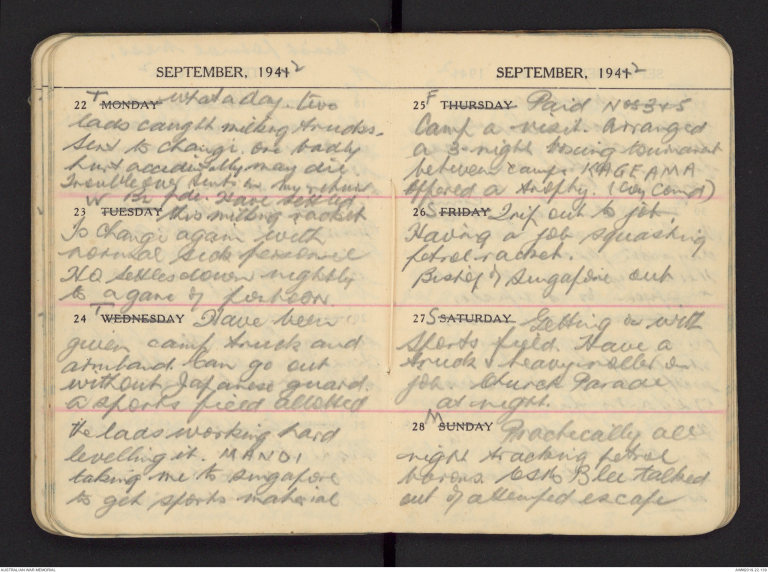 SEPTEMBER, 1941 2
22 T MONDAY What a day. Two
lads caught milking trucks.
Sent to Changi. One badly
hurt accidentally may die.
Trouble over tents on my return
Have settled
23 W TUESDAY this milking racket
To Changi again with
normal sick personnel
HQ settles down nightly
to a game of
24 T WEDNESDAY Have been
given camp truck and
armband. Can go out
without Japanese guard.
A sports field allotted
The lads working hard
levelling it. MANDI
taking me to Singapore
to get sports material
SEPTEMBER, 1941 2
25 F THURSDAY Paid Nos 3 & 5
Camp a visit. Arranged
a 3-night boxing tournament
between camps KAGEAMA
offered a trophy. (Coy Comd)
26 S FRIDAY Trip out to job
Having a job squashing
petrol racket.
Bishop of Singapore out
27 S SATURDAY Getting on with
Sports field. Have a
truck & heavy roller on
job. Church Parade
at night.
28 M SUNDAY Practically all
night tracking petrol
barons. Blee talked
out of attempted escape
AUSTRALIAN WAR MEMORIAL